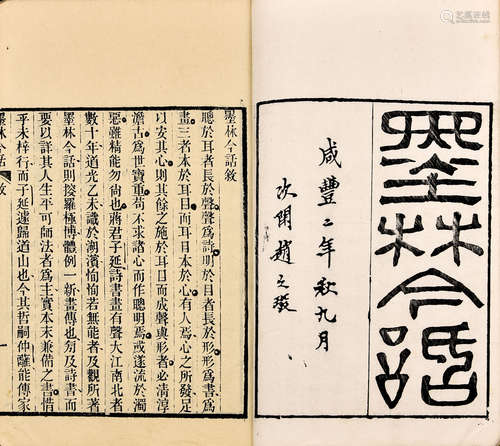 墨林今話
咸豐二年秋九月
次閑趙之琛
墨林今話敘
聰於耳者長於聲聲爲詩明於目者長於形形爲書爲
畫三者本於耳目而耳目本於心有人焉心之所發足
以安其心則其餘之施於耳目而成聲與形者必清淳
澹古爲世寶重苟不求諸心而作聰明焉或遂流於濁
惡雖精能勿尙也蔣君子延詩書畫有聲大江南北者
數十年道光乙未識於湖濱恂恂若無能者及觀所著
墨林今話則搜羅極博體例一新畫傳也及詩書而
要以詳其人生平可師法者爲主實本末兼備之書惜
乎未梓行而子延遽歸道山也今其哲嗣仲籬能傳家
墨林今話 敘